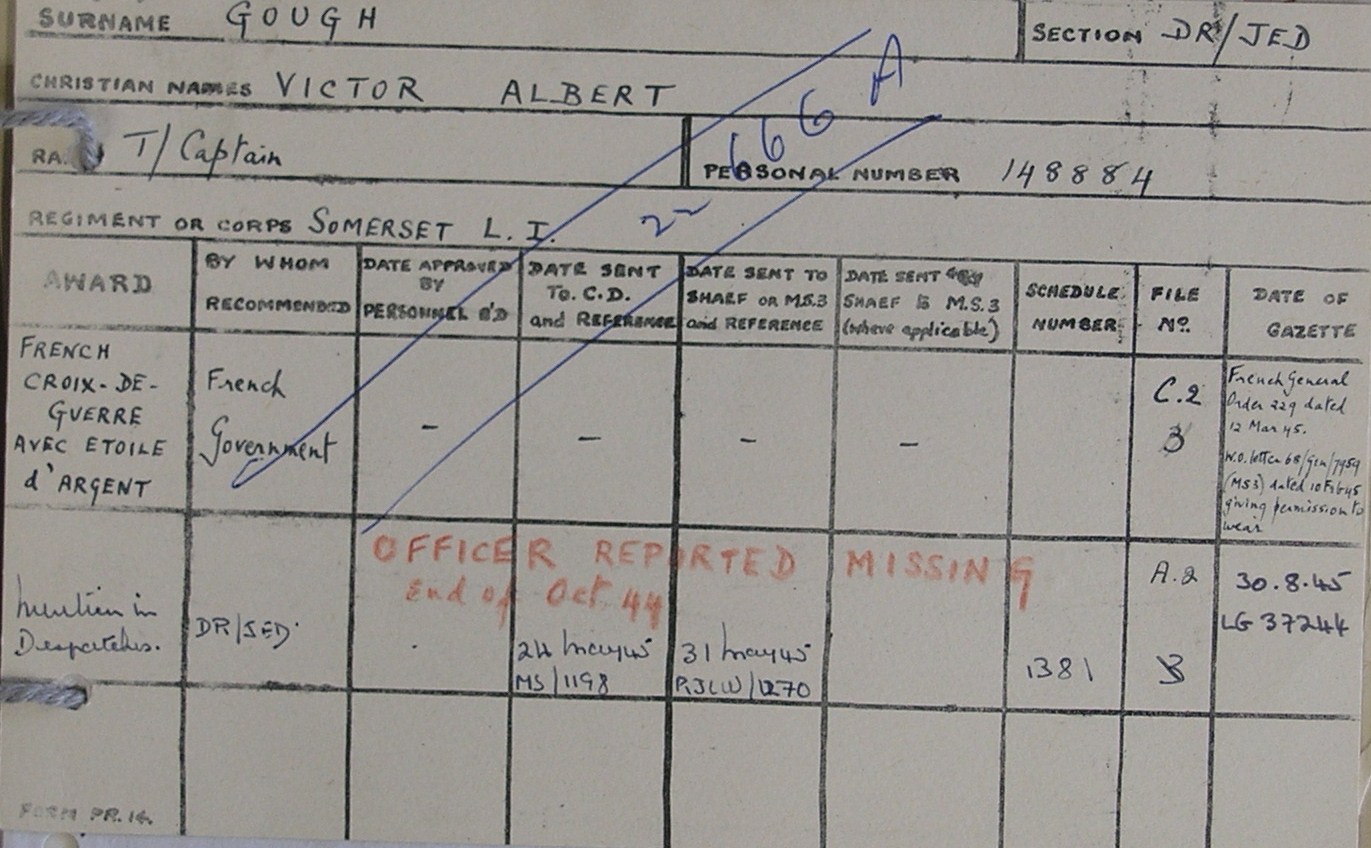 SURNAME GOUGH
SECTION DR/JED
CHRISTIAN NAMES VICTOR ALBERT
RA. T/Captain
PERSONAL NUMBER 148884
666 A
22
REGIMENT OR CORPS SOMERSET L.I.
AWARD
BY WHOM
RECOMMENDED
DATE APPROVED
BY
PERSONNEL B'D
DATE SENT
TO C.D.
and REFERENCE
DATE SENT TO
SHAEF OR M.S.3
and REFERENCE
DATE SENT BY
SHAEF to M.S.3
(where applicable)
SCHEDULE
NUMBER
FILE
Nº.
DATE OF
GAZETTE
FRENCH
CROIX-DE-
GUERRE
AVEC ETOILE
d'ARGENT
French
Government
-
-
-
-
C.2
3
French General
Order 229 dated
12 Mar 45.
W.O. letter 68/Gen/7959
(MS3) dated 10 Feb 45
giving permission to
wear
OFFICER REPORTED MISSING
End of Oct 44
Mention in
Despatches.
DR/JED
24 May 45
MS/1198
31 May 45
PJLW/1270
1381
A.2
3
30.8.45
LG 37244
FORM PR.14.